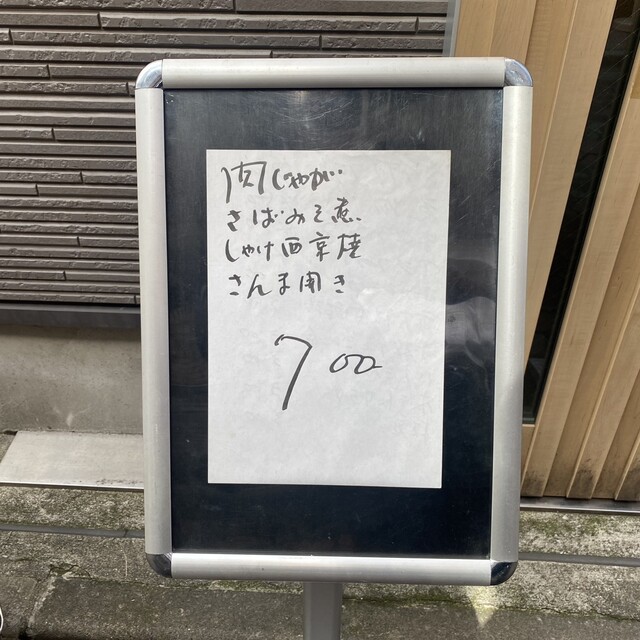 肉じゃが
さばみそ煮
しゃけ西京焼
さんま開き
700